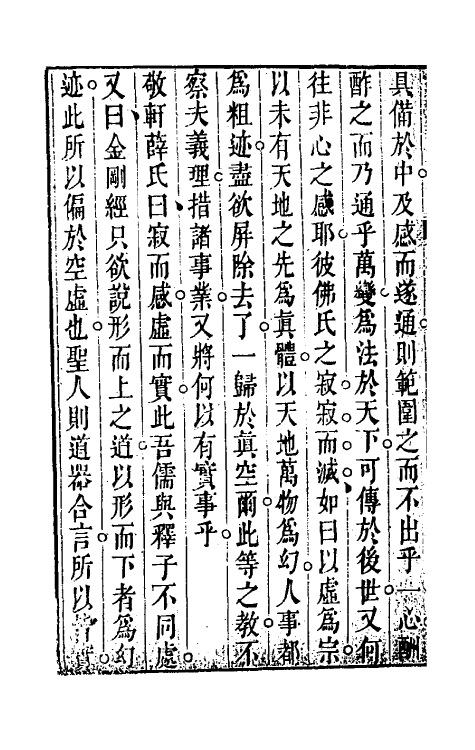 具備於中及感而遂通則範圍之而不出乎一心酬
酢之而乃通乎萬變爲法於天下可傳於後世又何
往非心之感耶彼佛氏之寂寂而滅如曰以虛爲宗
以未有天地之先爲眞體以天地萬物爲幻人事都
爲粗迹盡欲屏除去了一歸於眞空爾此等之教不
察夫義理措諸事業又將何以有實事乎
敬軒薛氏曰寂而感虛而實此吾儒與釋子不同處
又曰金剛經只欲說形而上之道以形而下者爲幻
迹此所以偏於空虛也聖人則道器合言所以皆實